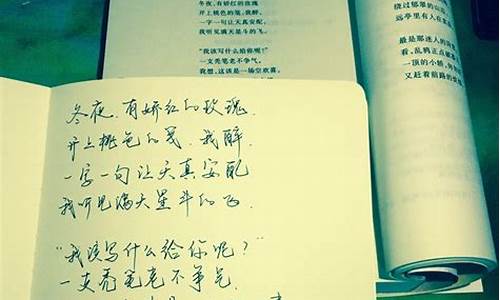 冬夜，有娇红的玫瑰
开上桃色的笺，我醉，
一字一句让天真安配
我听见满天星斗的飞。
“我该写什么给你呢？”
一支秃笔老不争气，
我想，这该是一场空欢喜。
绕过郁翠的山
远亭里有人在
最是那迷人的
看，乱鸦正点
一顶的小轿，
又赶着前路的
冬夜，有娇红的玫瑰
开上桃色的笺，我醉
一字一句让天真安配
我听见满天星斗的飞
“我该写什么给你呢？”
一支秃笔老不争气